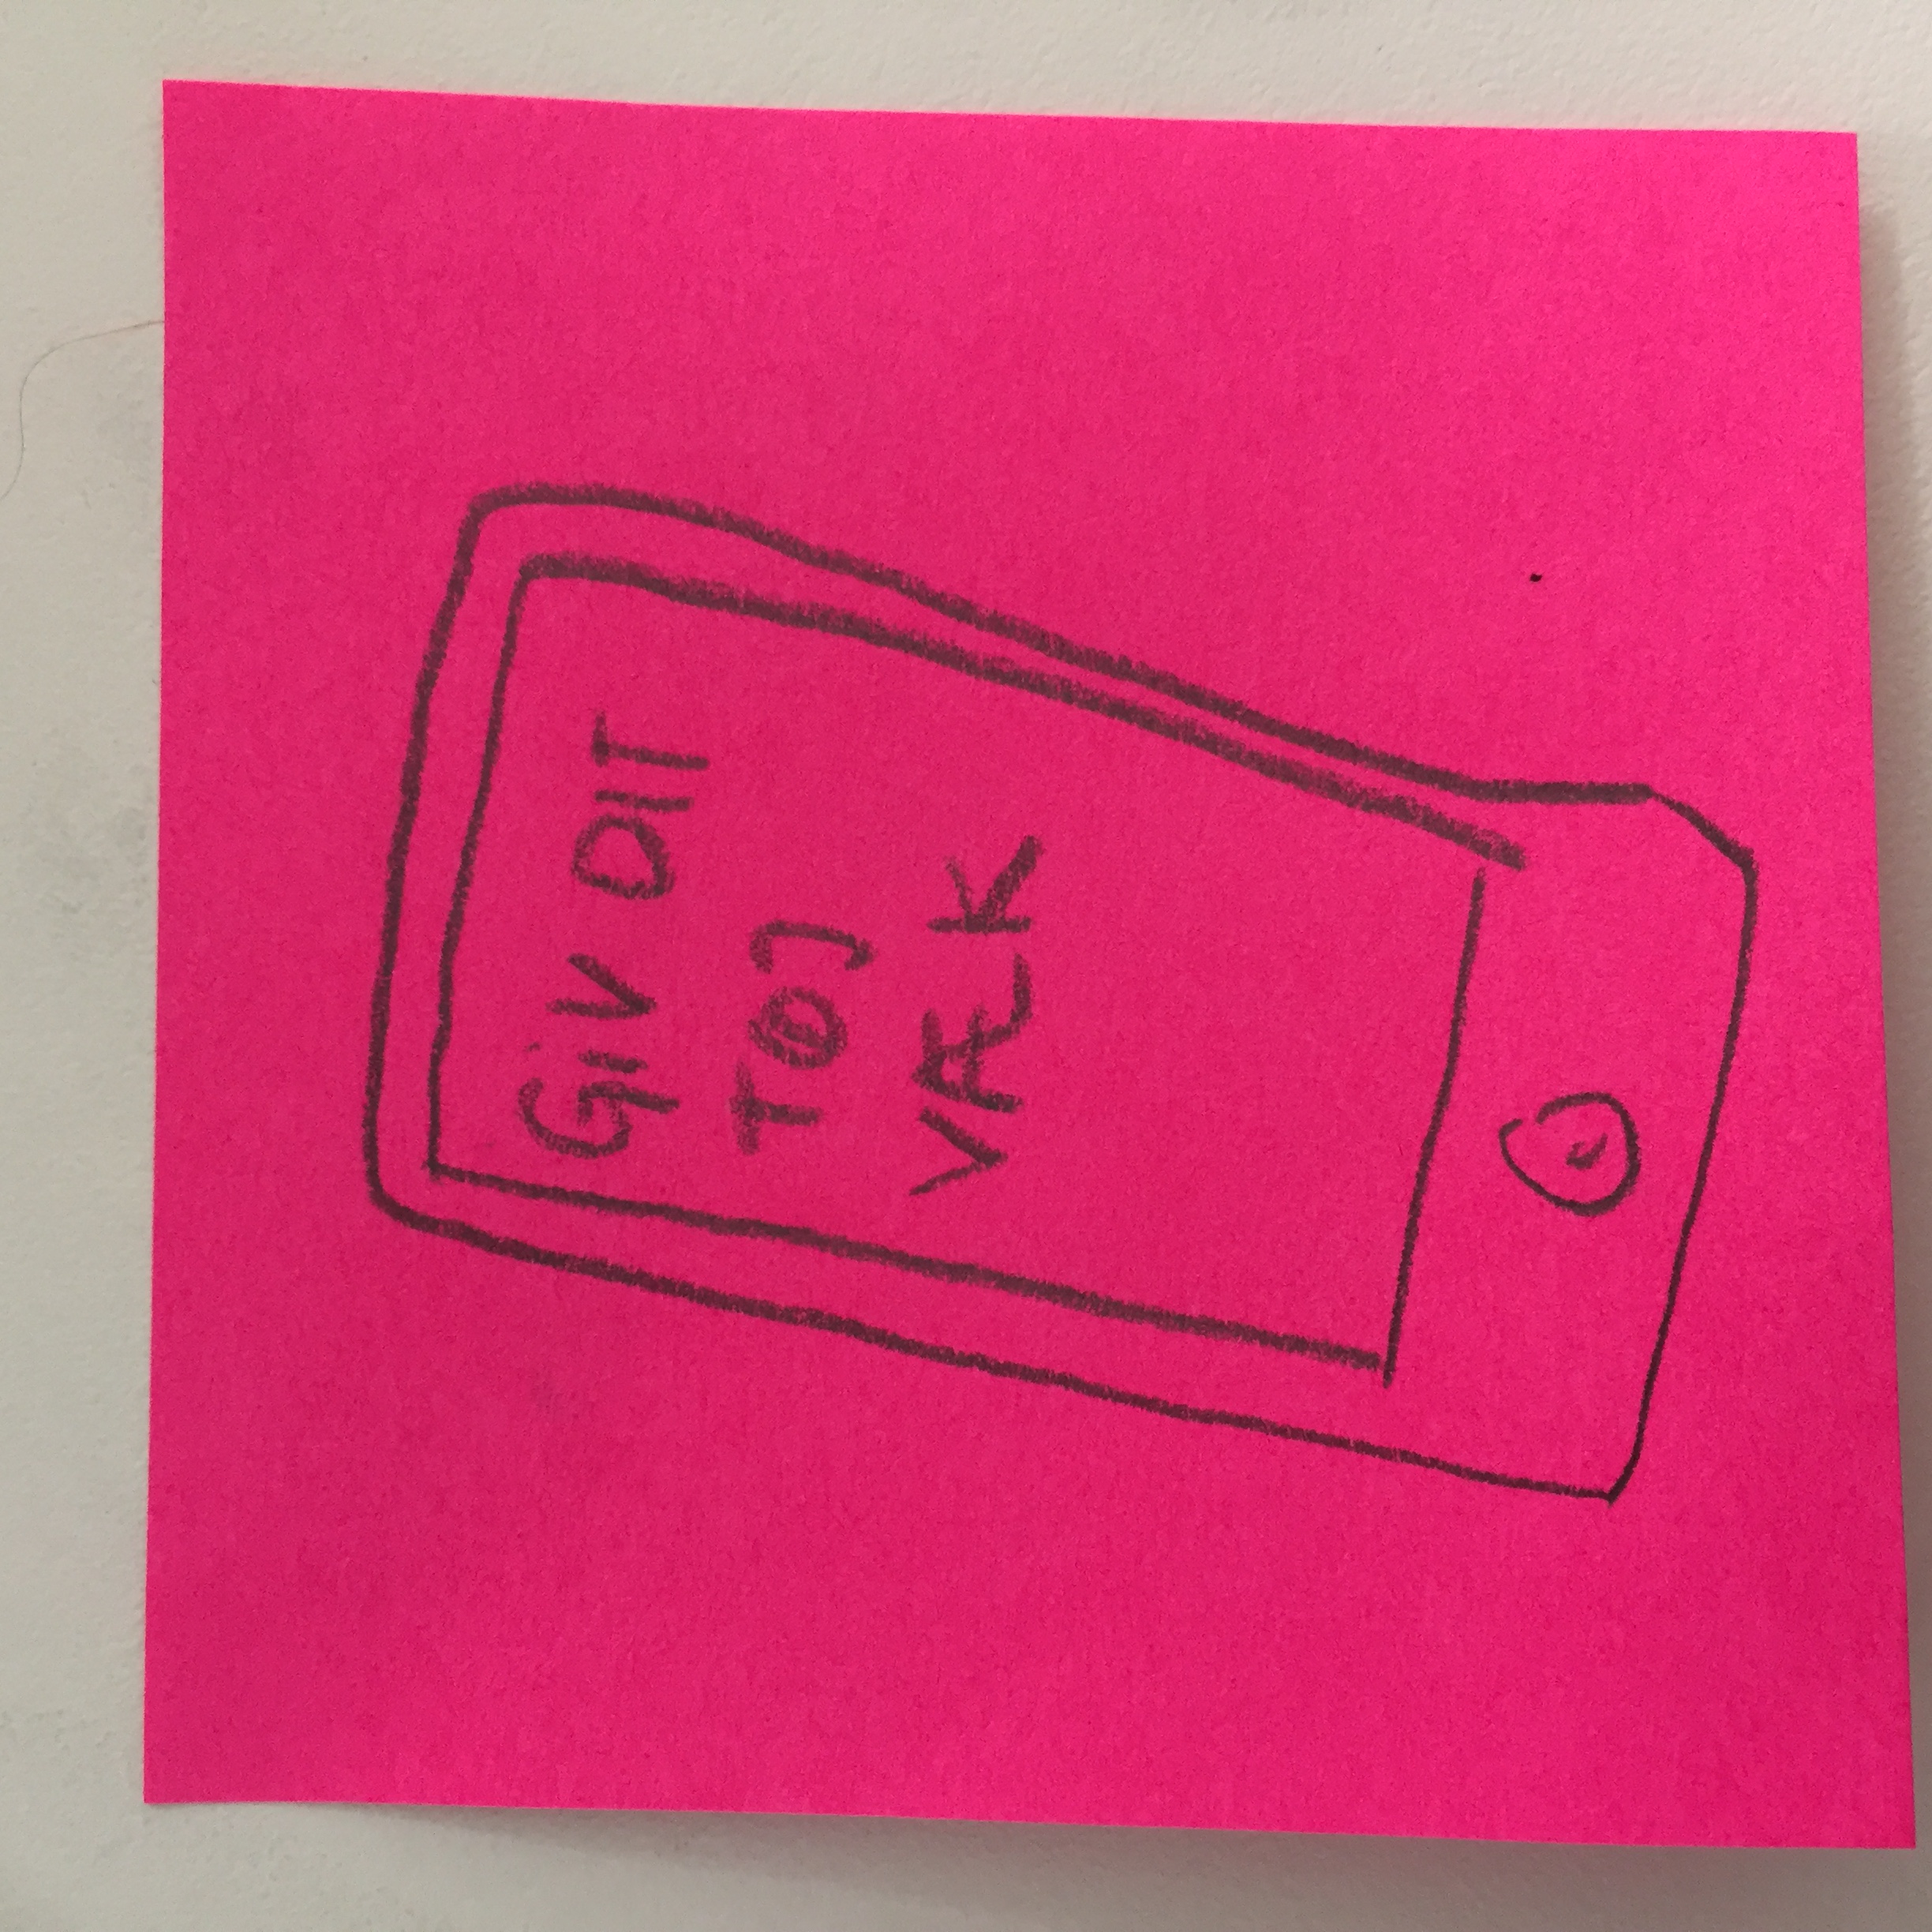 GiV DIT
TØJ
VÆK